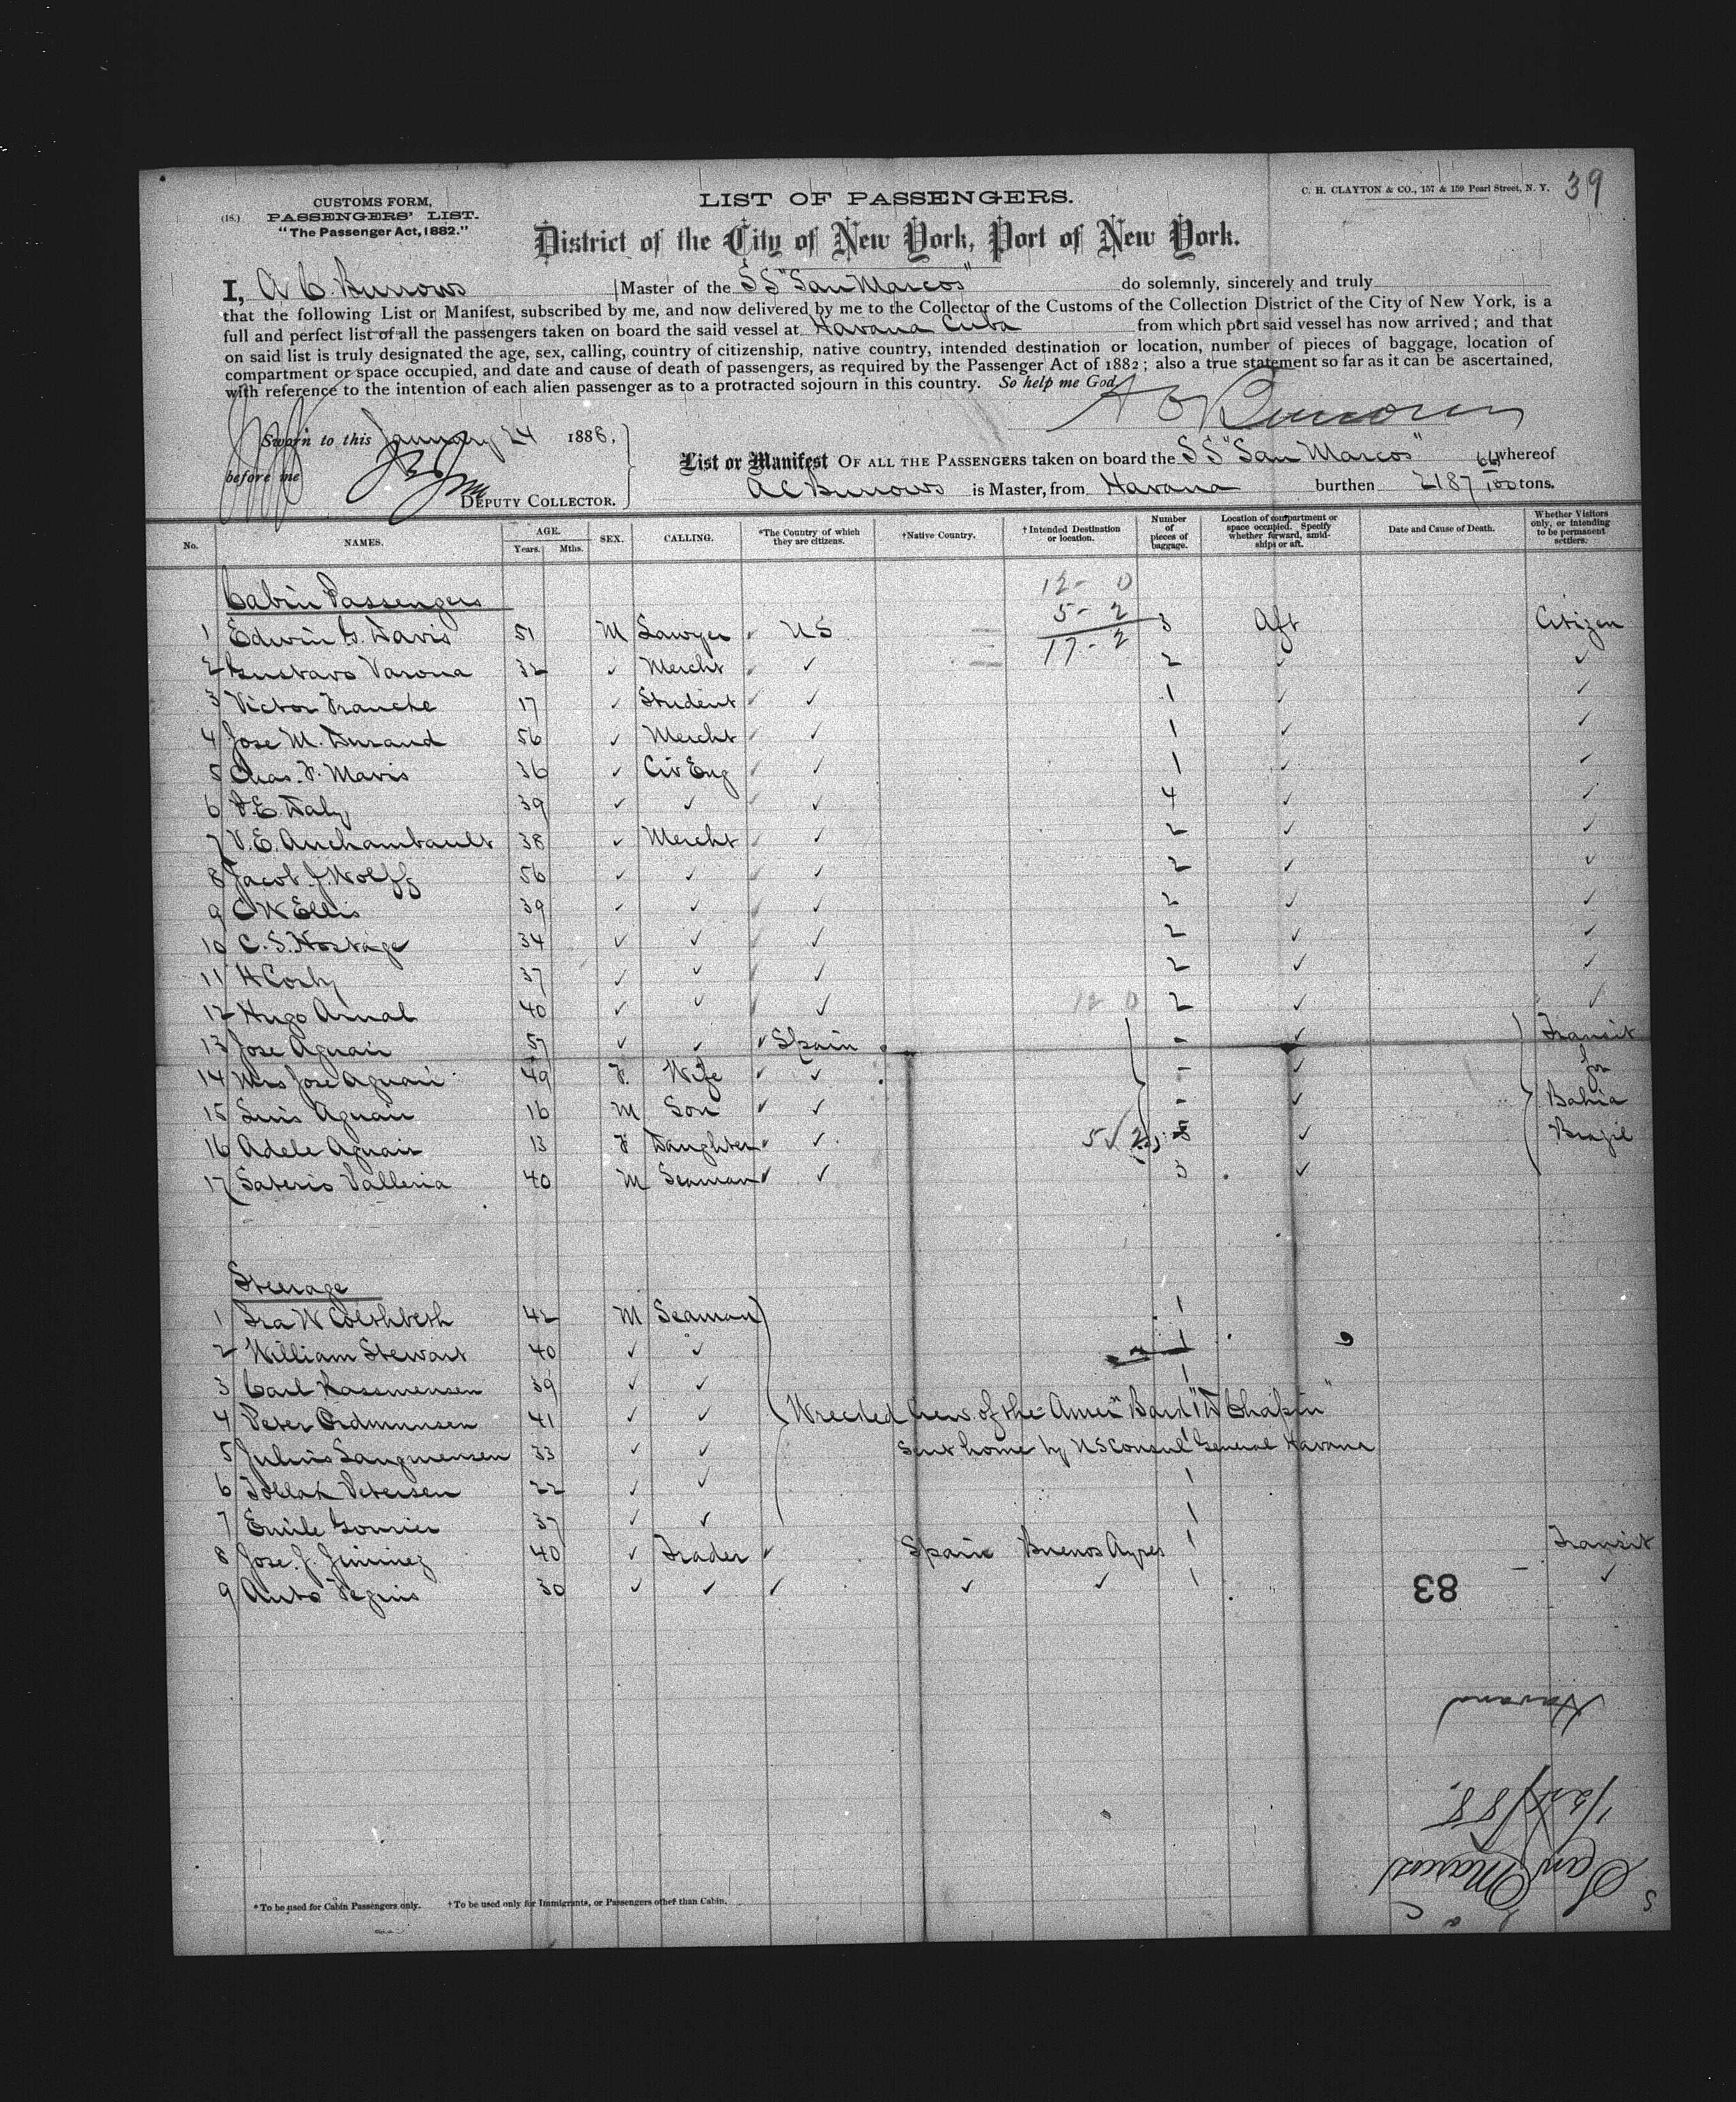 39
C. H. CLAYTON & CO., 157 & 159 Pearl Street, N. Y.
(18.)
CUSTOMS FORM,
PASSENGERS' LIST.
"The Passenger Act, 1882."
LIST OF PASSENGERS.
District of the City of New York, Port of New York.
I, A C. Burrows Master of the SS "San Marcos" do solemnly, sincerely and truly
that the following List or Manifest, subscribed by me, and now delivered by me to the Collector of the Customs of the Collection District of the City of New York, is a
full and perfect list of all the passengers taken on board the said vessel at Havana Cuba from which port said vessel has now arrived; and that
on said list is truly designated the age, sex, calling, country of citizenship, native country, intended destination or location, number of pieces of baggage, location of
compartment or space occupied, and date and cause of death of passengers, as required by the Passenger Act of 1882; also a true statement so far as it can be ascertained,
with reference to the intention of each alien passenger as to a protracted sojourn in this country. So help me God,
A C Burrows
Sworn to this January 24 1888,
before me
DEPUTY COLLECTOR.
List or Manifest OF ALL THE PASSENGERS taken on board the SS "San Marcos" whereof
A C Burrows is Master, from Havana burthen 2187 66/100 tons.
No. NAMES. AGE. Years. Mths. SEX. CALLING. *The Country of which they are citizens. †Native Country. †Intended Destination or location. Number of pieces of baggage. Location of compartment or space occupied. Specify whether forward, amidships or aft. Date and Cause of Death. Whether Visitors only, or intending to be permanent settlers.
12- 0
5- 2
17- 2
Cabin Passengers
1 Edwin G. Davis 51 M Lawyer ✓ US 3 Aft Citizen
2 Gustavo Varona 32 ✓ Mercht ✓ ✓ 2 ✓ ✓
3 Victor Franche 17 ✓ Student ✓ ✓ 1 ✓ ✓
4 Jose M. Durand 56 ✓ Mercht ✓ ✓ 1 ✓ ✓
5 Chas. F. Mavis 36 ✓ Civ Eng ✓ ✓ 1 ✓ ✓
6 F.E. Daly 39 ✓ ✓ ✓ ✓ 4 ✓ ✓
7 V.E. Archambault 38 ✓ Mercht ✓ ✓ 2 ✓ ✓
8 Jacob J. Wolff 56 ✓ ✓ ✓ ✓ 2 ✓ ✓
9 C W Ellis 39 ✓ ✓ ✓ ✓ 2 ✓ ✓
10 C. S. Hostage 34 ✓ ✓ ✓ ✓ 2 ✓ ✓
11 H Cosby 37 ✓ ✓ ✓ ✓ 2 ✓ ✓
12 Hugo Arnal 40 ✓ ✓ ✓ ✓ 12 0 2 ✓ ✓
13 Jose Aguair 57 ✓ ✓ ✓ Spain - ✓ Transit
14 Mrs Jose Aguair 49 F. Wife ✓ ✓ - ✓ for
15 Luis Aguair 16 M Son ✓ ✓ - ✓ Bahia
16 Adele Aguair 13 F Daughter ✓ ✓ 5 ✓ 2 5 ✓ Brazil
17 Saterio Valleria 40 M Seaman ✓ ✓ 3 ✓
Steerage
1 Ira W Colthbeth 42 M Seaman 1
2 William Stewart 40 ✓ ✓ 1
3 Carl Rassmensen 39 ✓ ✓ 1
4 Peter Ordmunsen 41 ✓ ✓ Wrecked Crew of the Amer Bark "D Chapin"
5 Julius Langmensen 33 ✓ ✓ Sent home by US Consul General Havana
6 Tollak Petersen 22 ✓ ✓ 1
7 Emile Gourier 37 ✓ ✓ 1
8 Jose J. Jiminez 40 ✓ Trader ✓ Spain Buenos Ayres 1 Transit
9 Anto Pegnis 30 ✓ ✓ ✓ ✓ ✓ 1 ✓
83
Havana
San Marcos
*To be used for Cabin Passengers only. †To be used only for Immigrants, or Passengers other than Cabin.